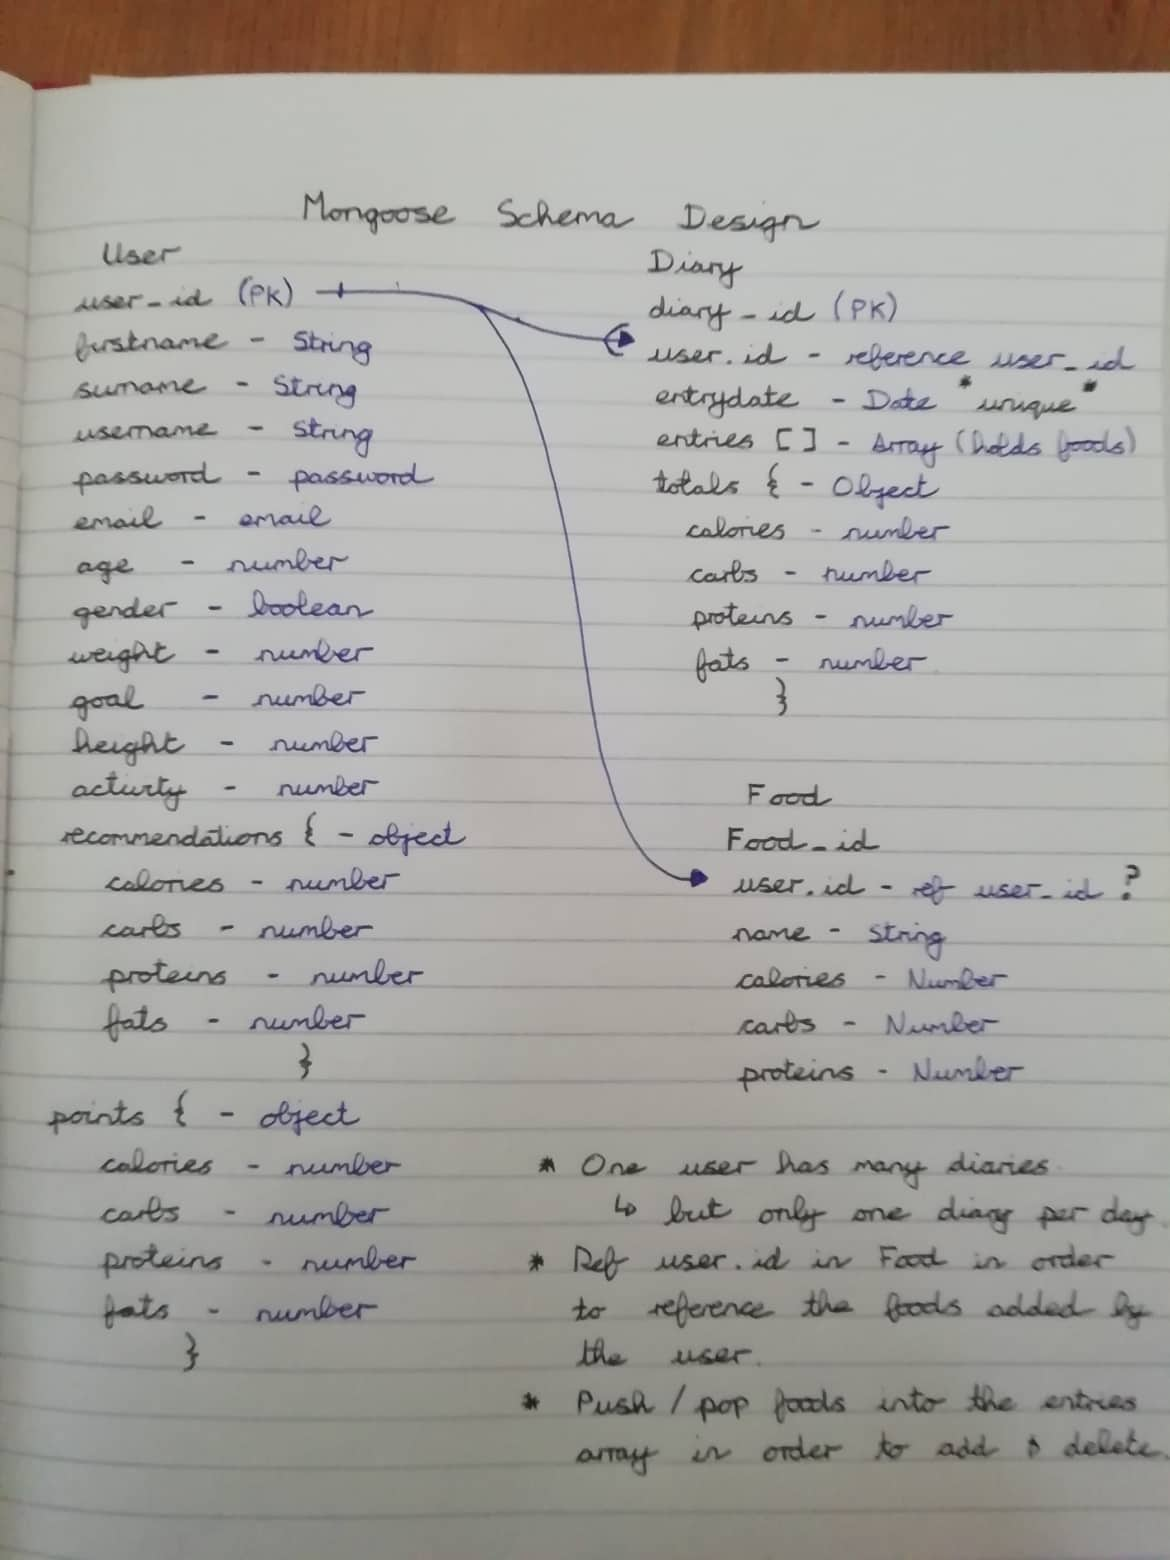 Mongoose Schema Design
User
user_id (PK)
firstname - String
surname - String
username - String
password - password
email - email
age - number
gender - boolean
weight - number
goal - number
height - number
activity - number
recommendations { - object
calories - number
carbs - number
proteins - number
fats - number
}
points { - object
calories - number
carbs - number
proteins - number
fats - number
}
Diary
diary_id (PK)
user.id - reference user_id
entrydate - Date *unique*
entries [] - Array (holds foods)
totals { - Object
calories - number
carbs - number
proteins - number
fats - number
}
Food
Food_id
user.id - ref user_id ?
name - String
calories - Number
carbs - Number
proteins - Number
* One user has many diaries
↳ but only one diary per day.
* Ref user.id in Food in order
to reference the foods added by
the user.
* Push / pop foods into the entries
array in order to add & delete.